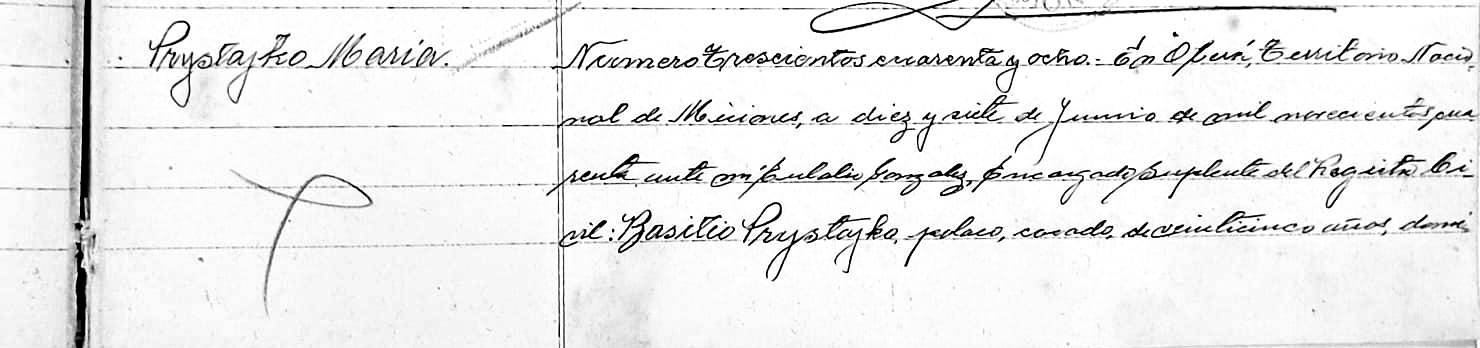 Prystajko Maria.
Numero trescientos cuarenta y ocho.- En Oberá, Territorio Nacio-
nal de Misiones, a diez y siete de Junio de mil novecientos cua
renta ante mi Eulalio Gonzalez, Encargado Suplente del Registro Ci-
vil: Basilio Prystajko, polaco, casado, de veinticinco años, domi